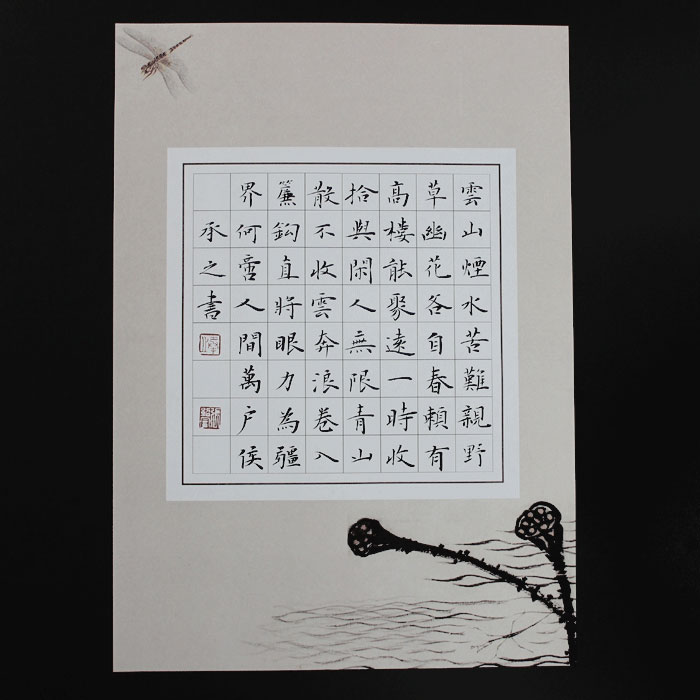 雲山煙水苦難親野
草幽花各自春賴有
高樓能聚遠一時收
拾與閑人無限青山
散不收雲奔浪卷入
簾鈎直將眼力為疆
界何啻人間萬戶侯
承之書